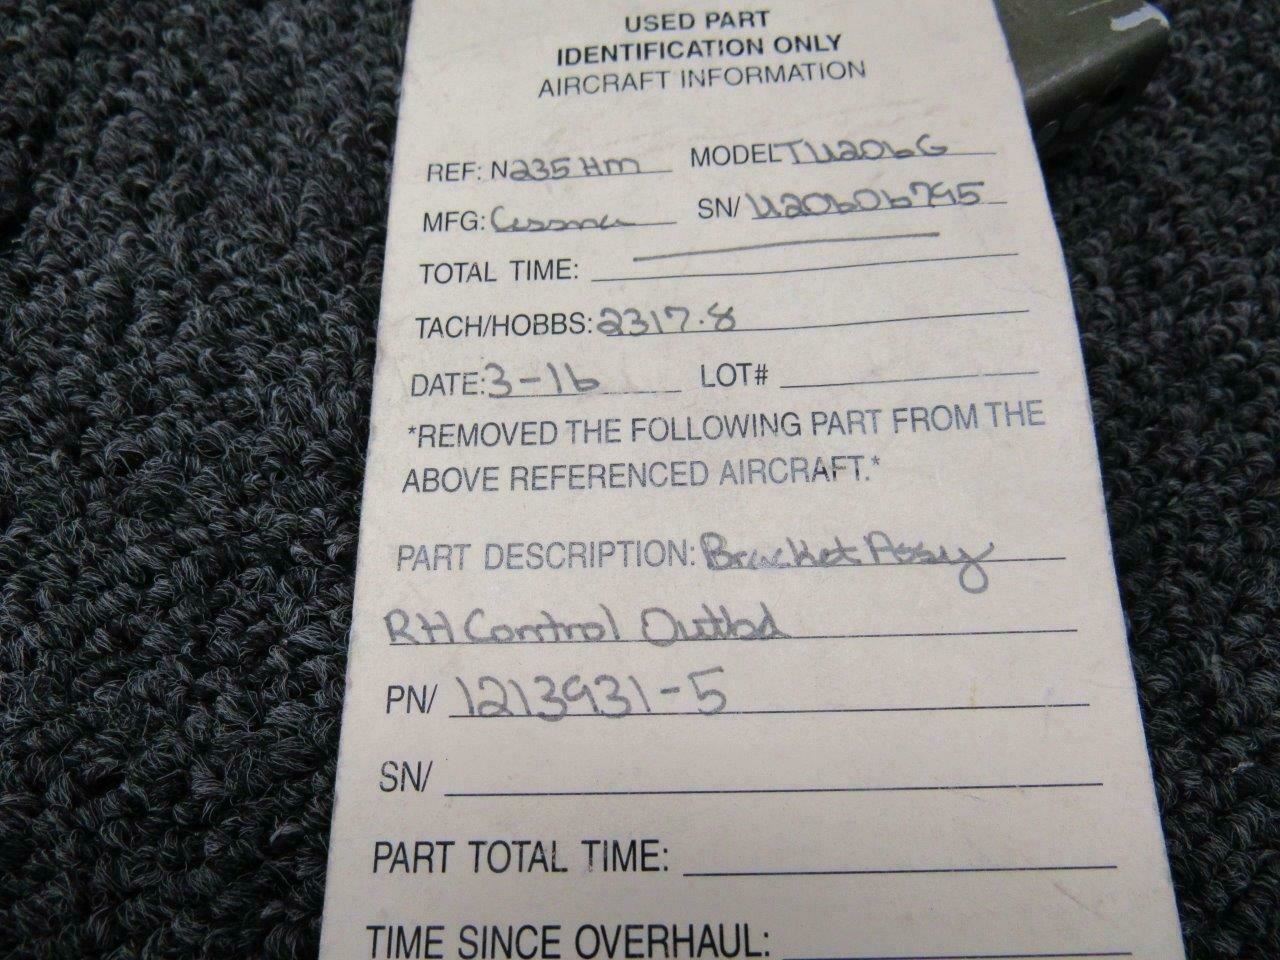 USED PART
IDENTIFICATION ONLY
AIRCRAFT INFORMATION
REF: N235HM MODEL TU206G
MFG: Cessna SN/ U20606795
TOTAL TIME:
TACH/HOBBS: 2317.8
DATE: 3-16 LOT#
*REMOVED THE FOLLOWING PART FROM THE
ABOVE REFERENCED AIRCRAFT.*
PART DESCRIPTION: Bracket Assy
RH Control Outbd
PN/ 1213931-5
SN/
PART TOTAL TIME:
TIME SINCE OVERHAUL: